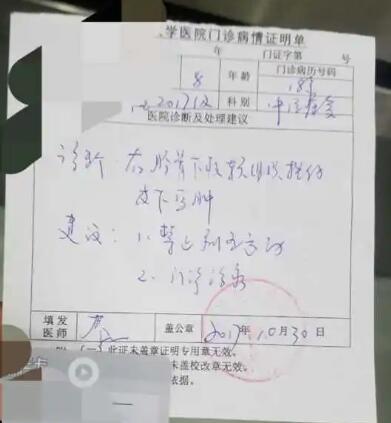 学医院门诊病情证明单
年 门证字第 号
8 年龄 门诊病历号码
科别
医院诊断及处理建议
诊断：右胫骨下段软组织挫伤
皮下血肿
建议：1.禁止剧烈运动
2.门诊治疗
填发医师 盖公章 2017年10月30日
附 (一)此证未盖章证明专用章无效。
未盖校改章无效。
依据。